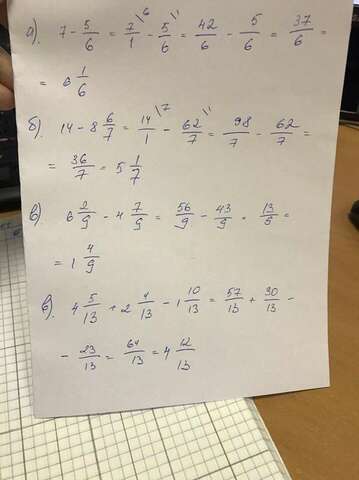 а). 7 - 5/6 = 7/1 \6 - 5/6 \1 = 42/6 - 5/6 = 37/6 =
= 6 1/6
б). 14 - 8 6/7 = 14/1 \7 - 62/7 \1 = 98/7 - 62/7 =
= 36/7 = 5 1/7
в) 6 2/9 - 4 7/9 = 56/9 - 43/9 = 13/9 =
= 1 4/9
в). 4 5/13 + 2 4/13 - 1 10/13 = 57/13 + 30/13 -
- 23/13 = 64/13 = 4 12/13